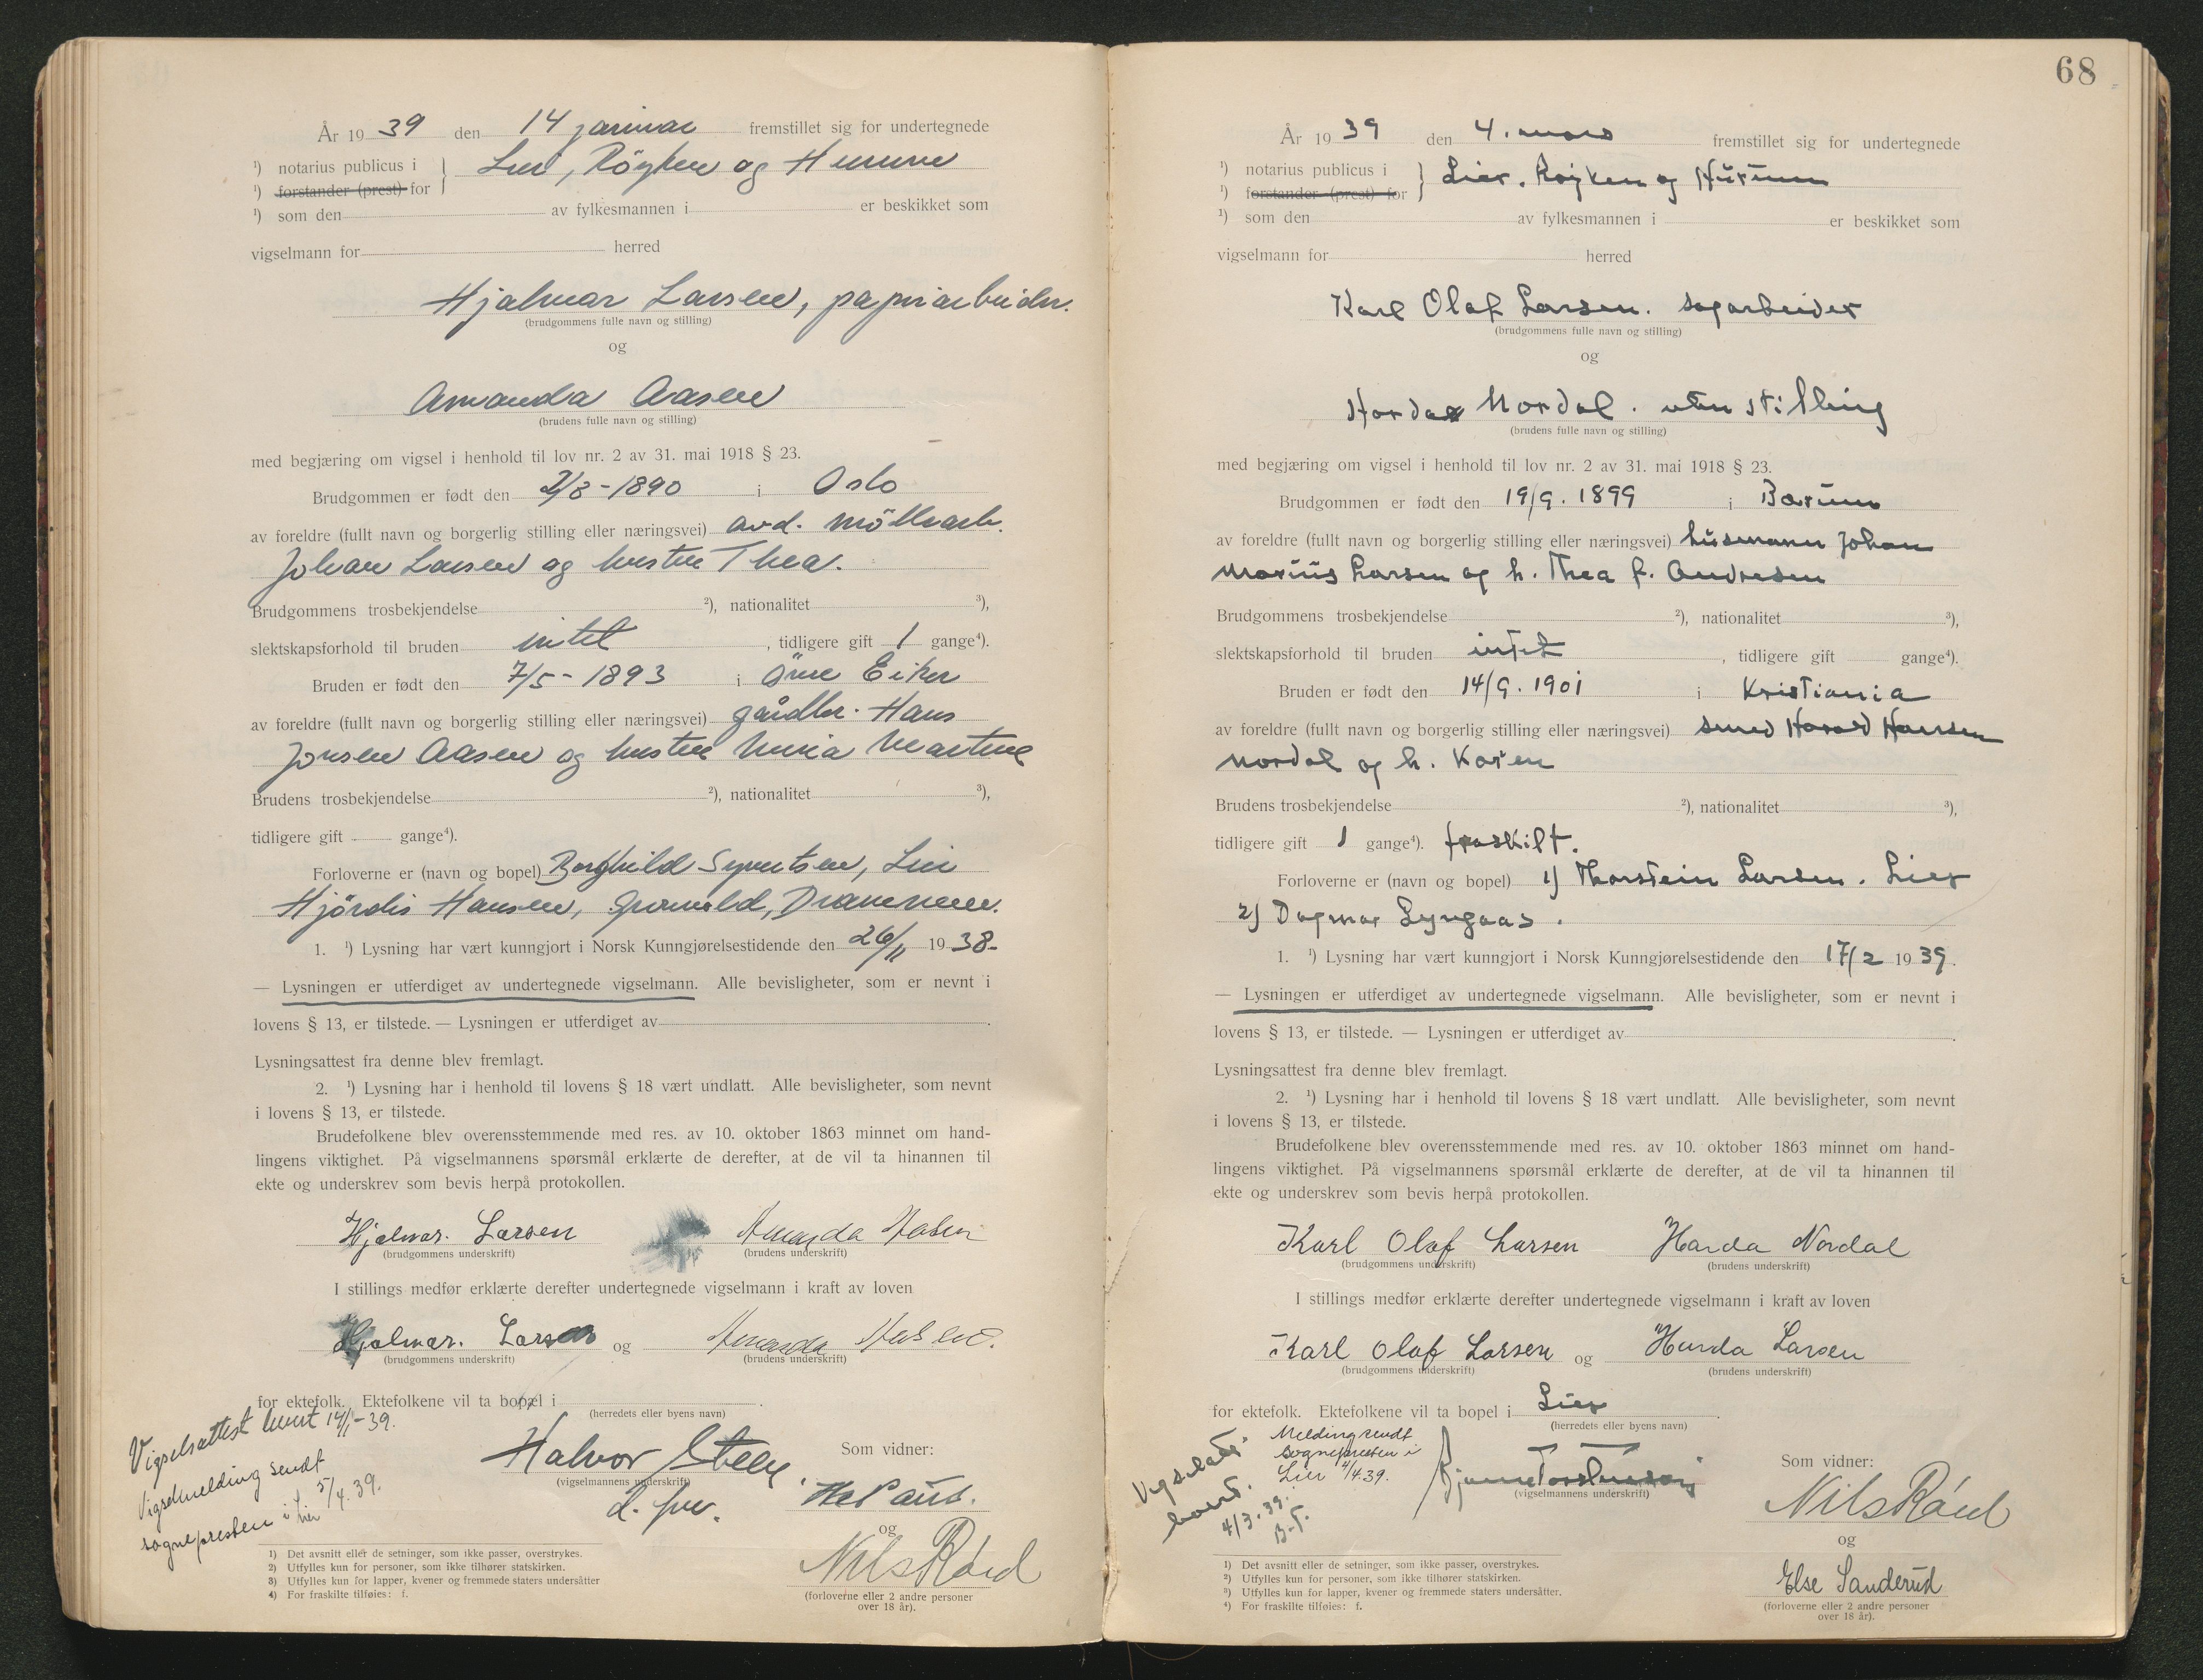 År 19 39 den 14 januar fremstillet sig for undertegnede
¹) notarius publicus i } Lier, Röyken og Hurum
¹) forstander (prest) for
¹) som den av fylkesmannen i er beskikket som
vigselmann for herred
Hjalmar Larsen, papirarbeider.
(brudgommens fulle navn og stilling)
og
Amanda Aasen
(brudens fulle navn og stilling)
med begjæring om vigsel i henhold til lov nr. 2 av 31. mai 1918 § 23.
Brudgommen er født den 2/8 - 1890 i Oslo
av foreldre (fullt navn og borgerlig stilling eller næringsvei) avd. möllearb.
Johan Larsen og hustru Thea.
Brudgommens trosbekjendelse ²), nationalitet ³),
slektskapsforhold til bruden intet, tidligere gift 1 gange⁴).
Bruden er født den 7/5 - 1893 i Övre Eiker
av foreldre (fullt navn og borgerlig stilling eller næringsvei) gårdbr. Hans
Jonsen Aasen og hustru Maria Martine
Brudens trosbekjendelse ²), nationalitet ³),
tidligere gift gange⁴).
Forloverne er (navn og bopel) Borghild Syvertsen, Lier
Hjördis Hansen, Drammen.
1. ¹) Lysning har vært kunngjort i Norsk Kunngjørelsestidende den 26/11 19 38.
— Lysningen er utferdiget av undertegnede vigselmann. Alle bevisligheter, som er nevnt i
lovens § 13, er tilstede. — Lysningen er utferdiget av .
Lysningsattest fra denne blev fremlagt.
2. ¹) Lysning har i henhold til lovens § 18 vært undlatt. Alle bevisligheter, som nevnt
i lovens § 13, er tilstede.
Brudefolkene blev overensstemmende med res. av 10. oktober 1863 minnet om hand-
lingens viktighet. På vigselmannens spørsmål erklærte de derefter, at de vil ta hinannen til
ekte og underskrev som bevis herpå protokollen.
Hjalmar. Larsen Amanda Aasen
(brudgommens underskrift) (brudens underskrift)
I stillings medfør erklærte derefter undertegnede vigselmann i kraft av loven
Hjalmar. Larsen og Amanda Aasen.
(brudgommens underskrift) (brudens underskrift)
for ektefolk. Ektefolkene vil ta bopæl i .
(herredets eller byens navn)
Vigselsattest levert 14/1 - 39.
Vigselmelding sendt
sognepresten i Lier 5/4. 39.
Halvor Steen.
(vigselmannens underskrift)
Som vidner:
og
Nils Röed
(forloverne eller 2 andre personer
over 18 år).
1) Det avsnitt eller de setninger, som ikke passer, overstrykes.
2) Utfylles kun for personer, som ikke tilhører statskirken.
3) Utfylles kun for lapper, kvener og fremmede staters undersåtter
4) For fraskilte tilføies: f.
68
År 19 39 den 4. mars fremstillet sig for undertegnede
¹) notarius publicus i } Lier. Röyken og Hurum
¹) forstander (prest) for
¹) som den av fylkesmannen i er beskikket som
vigselmann for herred
Karl Olaf Larsen. sagarbeider
(brudgommens fulle navn og stilling)
og
Harda Nordal. uten stilling
(brudens fulle navn og stilling)
med begjæring om vigsel i henhold til lov nr. 2 av 31. mai 1918 § 23.
Brudgommen er født den 19/9. 1899 i Bærum
av foreldre (fullt navn og borgerlig stilling eller næringsvei) husmann Johan
Marius Larsen og h. Thea f. Andresen
Brudgommens trosbekjendelse ²), nationalitet ³),
slektskapsforhold til bruden intet, tidligere gift gange⁴).
Bruden er født den 14/9. 1901 i Kristiania
av foreldre (fullt navn og borgerlig stilling eller næringsvei) smed Harald Hansen
Nordal og h. Karen
Brudens trosbekjendelse ²), nationalitet ³),
tidligere gift 1 gange⁴). fraskilt.
Forloverne er (navn og bopel) 1) Thorstein Larsen. Lier
2) Dagmar Lyngaas.
1. ¹) Lysning har vært kunngjort i Norsk Kunngjørelsestidende den 17/2 19 39.
— Lysningen er utferdiget av undertegnede vigselmann. Alle bevisligheter, som er nevnt i
lovens § 13, er tilstede. — Lysningen er utferdiget av .
Lysningsattest fra denne blev fremlagt.
2. ¹) Lysning har i henhold til lovens § 18 vært undlatt. Alle bevisligheter, som nevnt
i lovens § 13, er tilstede.
Brudefolkene blev overensstemmende med res. av 10. oktober 1863 minnet om hand-
lingens viktighet. På vigselmannens spørsmål erklærte de derefter, at de vil ta hinannen til
ekte og underskrev som bevis herpå protokollen.
Karl Olaf Larsen Harda Nordal
(brudgommens underskrift) (brudens underskrift)
I stillings medfør erklærte derefter undertegnede vigselmann i kraft av loven
Karl Olaf Larsen og Harda Larsen
(brudgommens underskrift) (brudens underskrift)
for ektefolk. Ektefolkene vil ta bopel i Lier .
(herredets eller byens navn)
Vigselatt.
levert.
4/3. 39.
B.T.
Melding sendt
sognepresten i
Lier 4/4. 39.
Bjarne Torstensen
(vigselmannens underskrift)
Som vidner:
Nils Röed
og
Else Sanderud
(forloverne eller 2 andre personer
over 18 år).
1) Det avsnitt eller de setninger, som ikke passer, overstrykes.
2) Utfylles kun for personer, som ikke tilhører statskirken.
3) Utfylles kun for lapper, kvener og fremmede staters undersåtter.
4) For fraskilte tilføies: f.